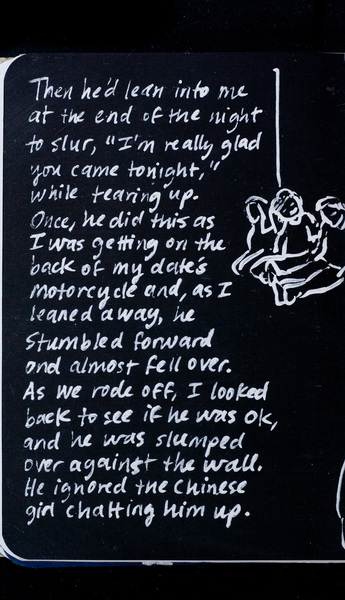 Then he'd lean into me
at the end of the night
to slur, "I'm really glad
you came tonight,"
while tearing up.
Once, he did this as
I was getting on the
back of my date's
motorcycle and, as I
leaned away, he
stumbled forward
and almost fell over.
As we rode off, I looked
back to see if he was OK,
and he was slumped
over against the wall.
He ignored the Chinese
girl chatting him up.